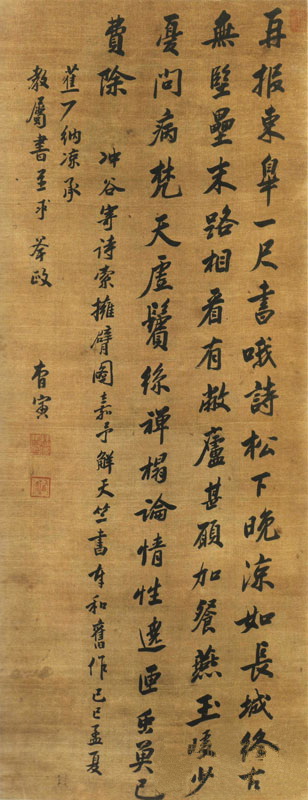 再報東皋一尺書哦詩松下晚涼如長城終古
無堅壘末路相看有敝廬甚願加餐燕玉暖少
憂問病梵天虛鬢絲禪榻論情性已
費除 冲谷寄詩索擁臂圖嘉予解天竺書和舊作己巳孟夏
蕉納涼承
教屬書並求 斧政
曹寅